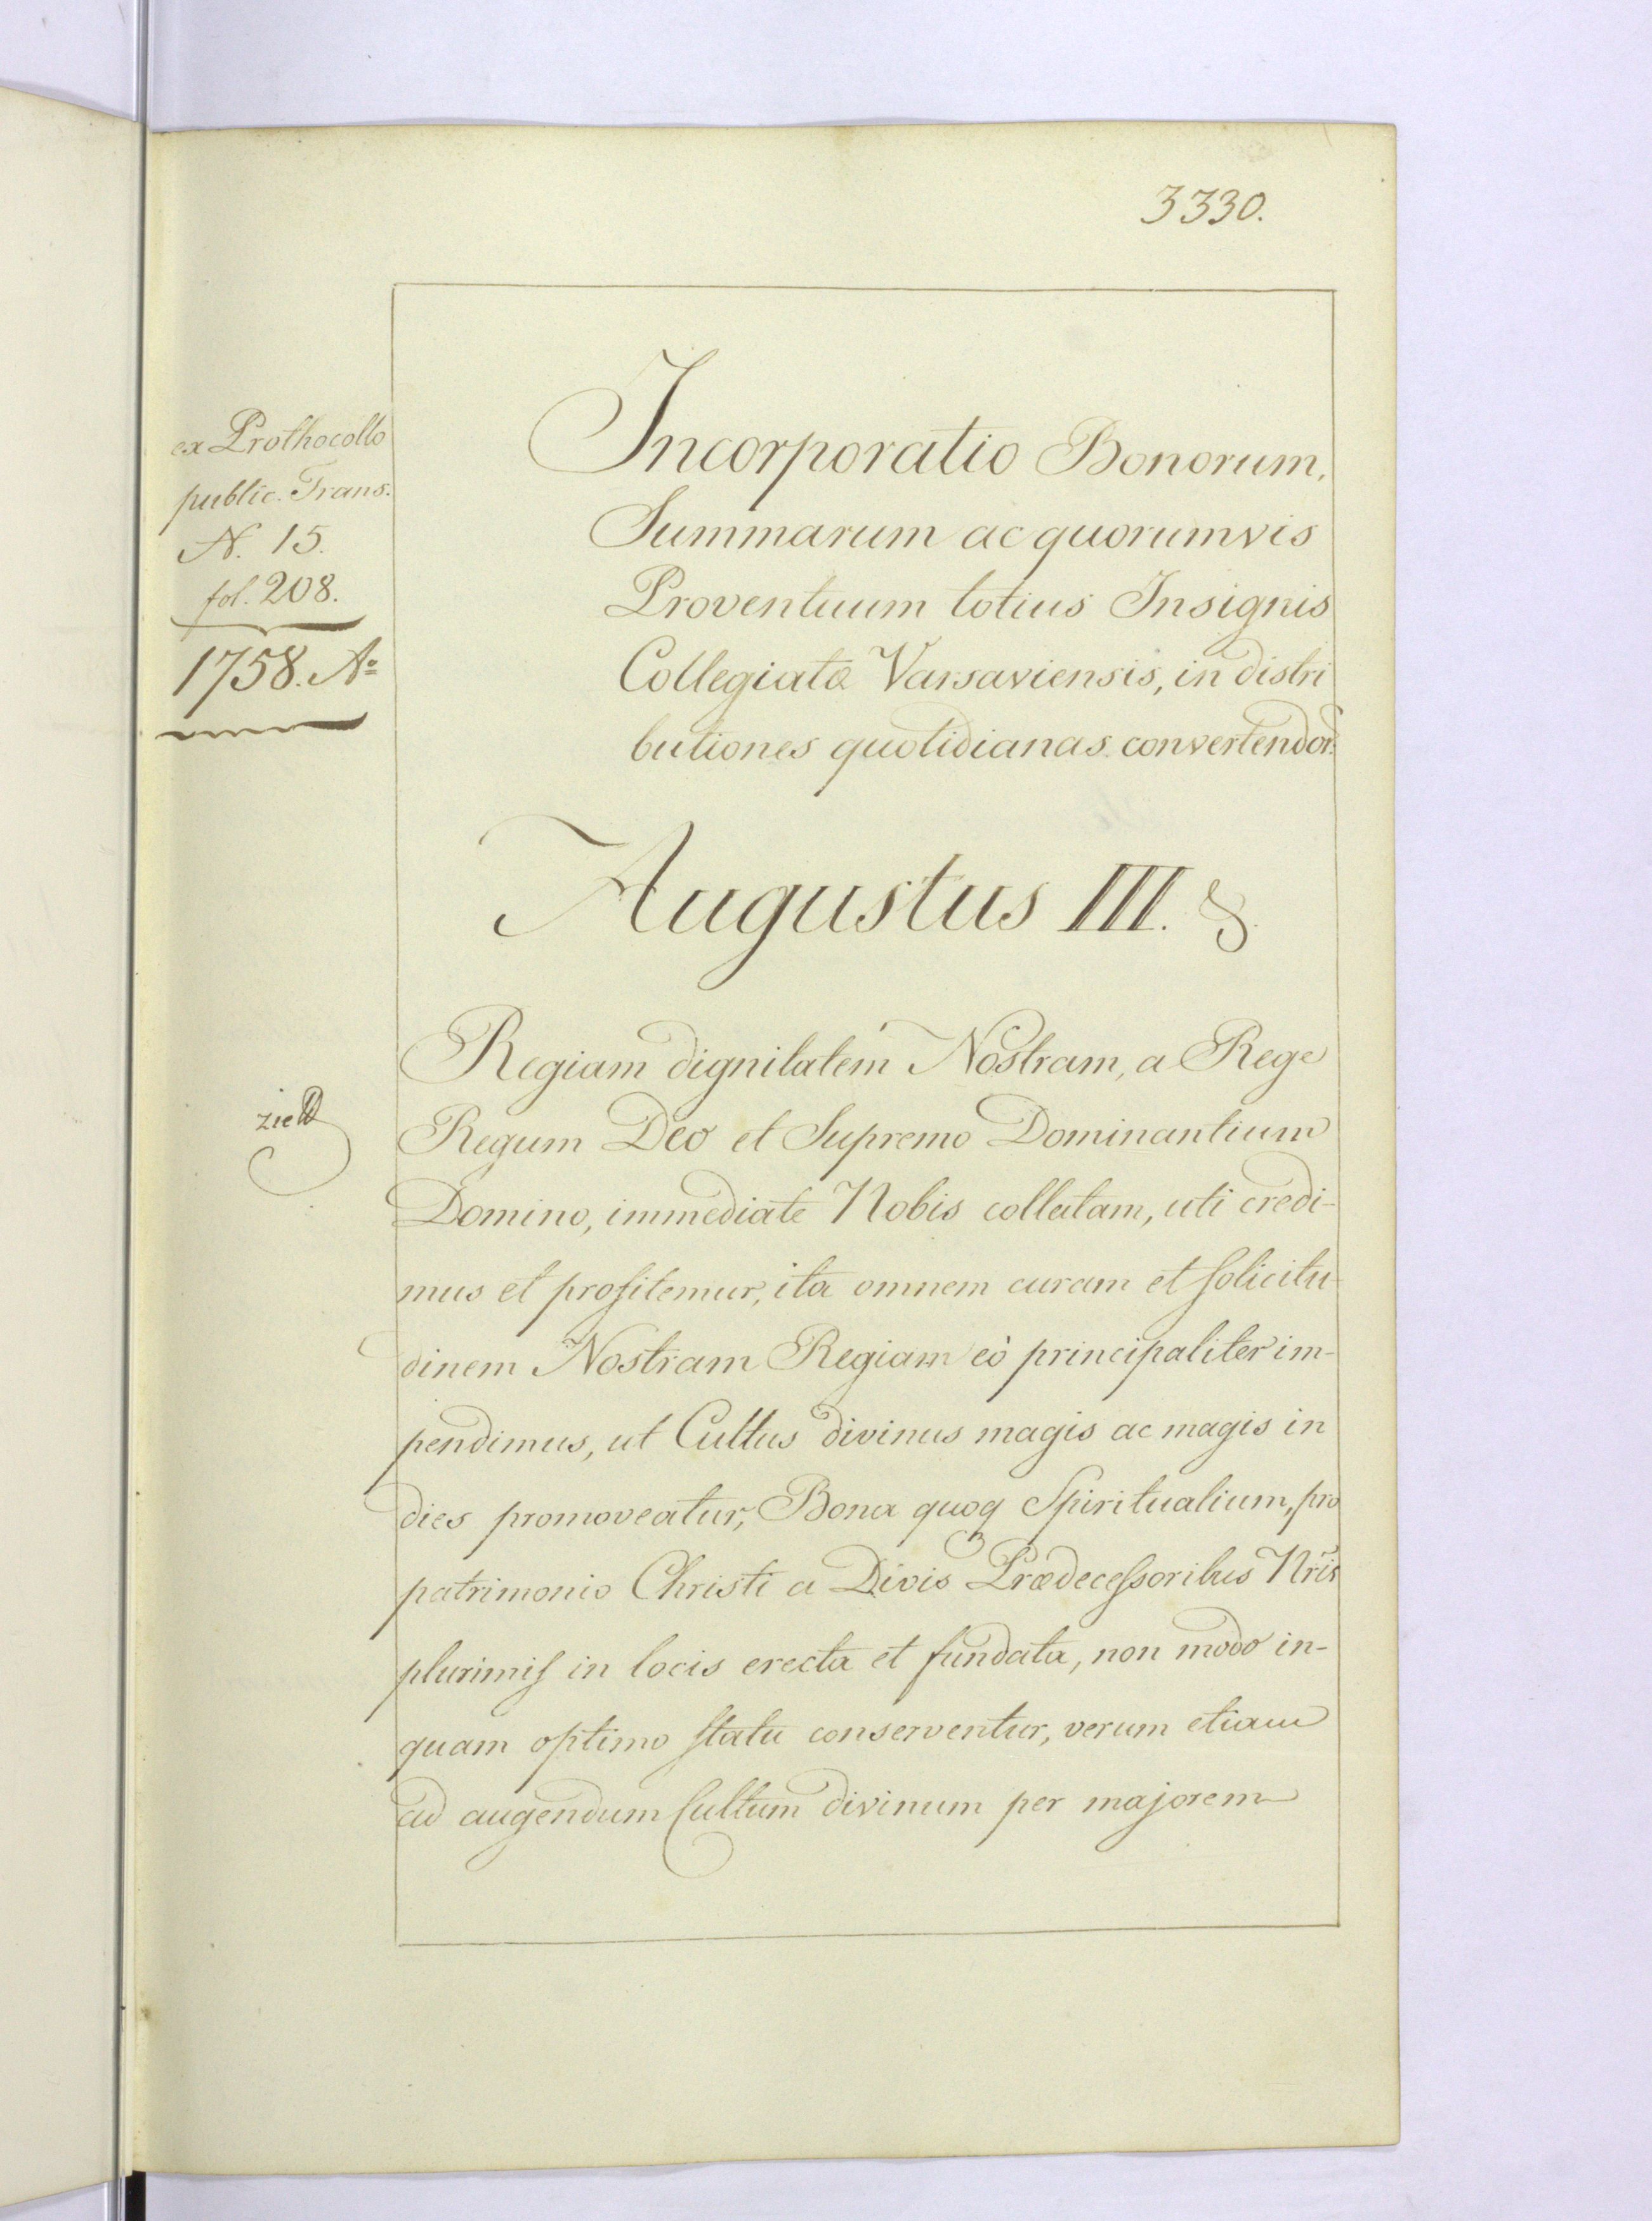 3330.
ex Prothocollo
public. Trans.
N. 15.
fol. 208.
1758. Aº
Incorporatio Bonorum,
Summarum ac quorumvis
Proventuum totius Insignis
Collegiatæ Varsaviensis, in distri
butiones quotidianas convertendor.
Augustus III. &.
Regiam dignitatem Nostram, a Rege
Regum Deo et Supremo Dominantium
Domino, immediate Nobis collatam, uti credi-
mus et profitemur, ita omnem curam et solicitu-
dinem Nostram Regiam eò principaliter im-
pendimus, ut Cultus divinus magis ac magis in
dies promoveatur, Bona quoq Spiritualium, pro
patrimonio Christi a Divis Prædecessoribus Nris
plurimis in locis erecta et fundata, non modo in-
quam optimo statu conserventur, verum etiam
ad augendum Cultum divinum per majorem